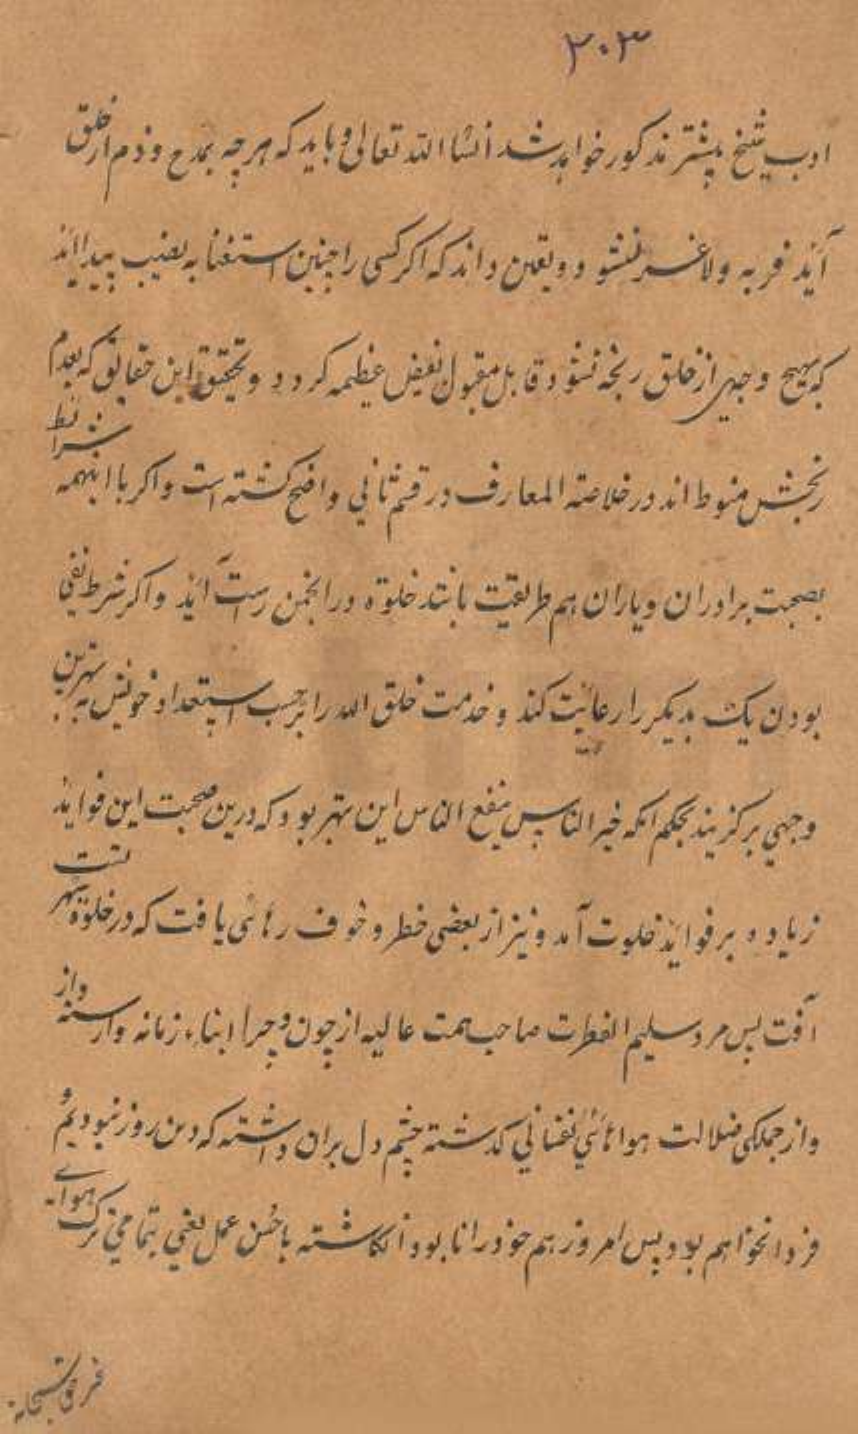 ۳۰۳
ادب شیخ پیشتر مذکور خواهد شد انشا الله تعالی و باید که هر چه بمدح و ذم از خلق
آید فربه و لاغر نشود و یقین داند که اکر کسی را چنین استغنا به نصیب پیدا آید
که بهیچ وجهی از خلق رنجه نشود قابل مقبول نفیض عظیمه کردد و تحقیق این حقایق که بعدم
رنجش منوط اند در خلاصه المعارف در قسم ثانی واضح کشته است و اکر با اینهمه شرائط
بصحبت برادران و یاران هم طریقیت باشد خلوة در انجمن راست آید و اکر شرط نفی
بودن یک بدیکر را رعایت کند و خدمت خلق الله را برحسب استعداد خویش به بهترین
وجهی برکزیند بحکم انکه خیر الناس ینفع الناس این بهتر بود که درین صحبت این فواید
زیاده بر فواید خلوت آمد و نیز از بعضی خطر و خوف رهائی یافت که در خلوة شهرتست
آفت پس مرد سلیم الفطرت صاحب همت عالیه از چون و چرا ابناء زمانه وارسته و از
و از جملکی ضلالت هواهائی نفسانی کدشته چشم دل بران داشته که دین روز نبودیم و
فردا نخواهم بود پس امروز هم خود را نابود انکاشته با حسن عمل یعنی بتمامی ترک هوای
غرض